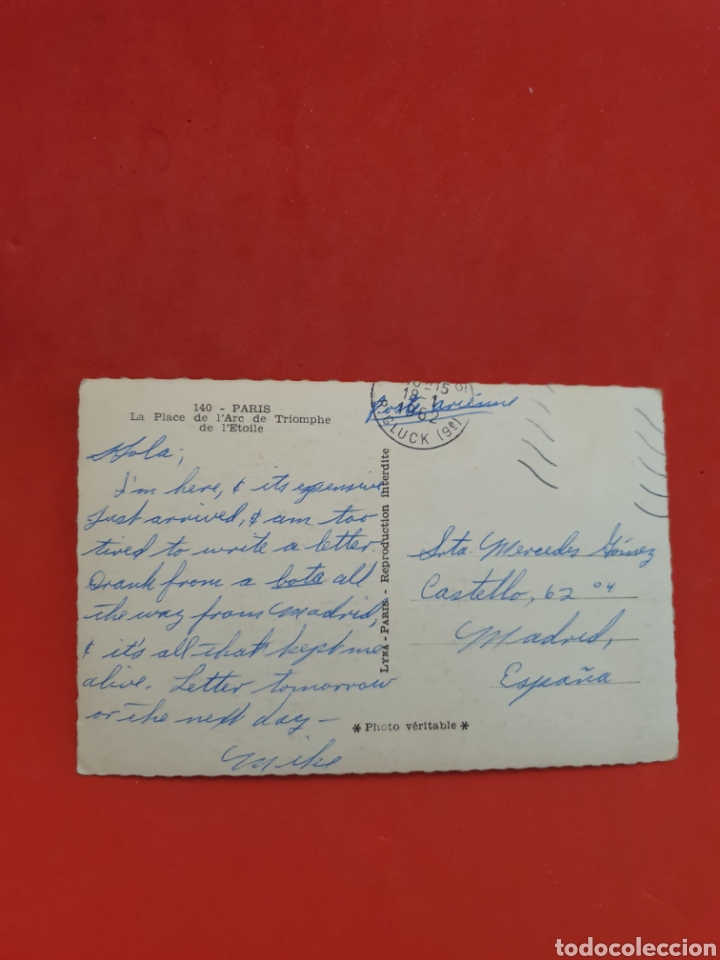 140 - PARIS
La Place de l'Arc de Triomphe
de l'Etoile
Hola;
I'm here, & its expensive
Just arrived, & am too
tired to write a letter.
Drank from a bota all
the way from Madrid,
& it's all that kept me
alive. Letter tomorrow
or the next day—
Mike
LYNA - PARIS - Reproduction interdite
* Photo véritable *
18-1
GLUCK (9e)
Srta. Mercedes Gómez
Castello, 62 04
Madrid,
España
todocoleccion